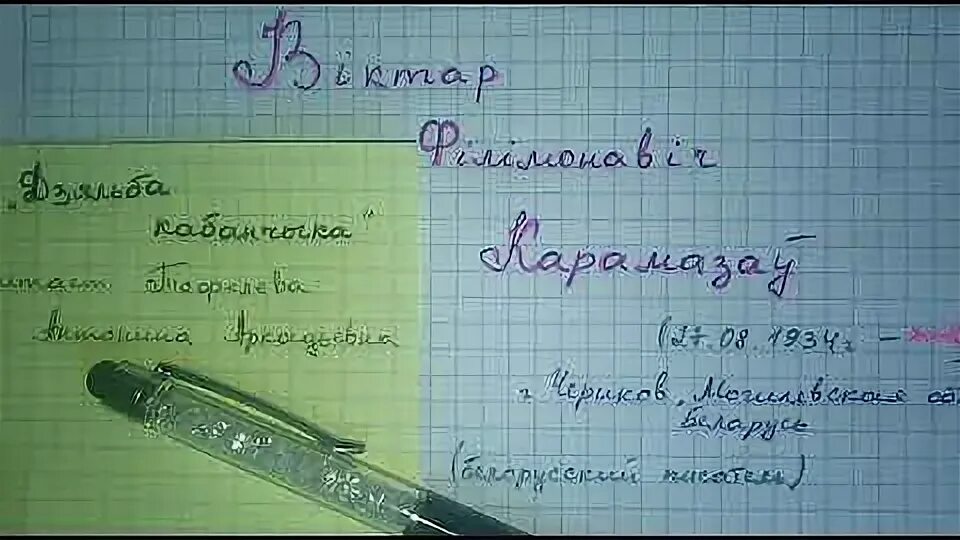 Віктар
Філімонавіч
Карамазаў
(27.08.1934г. –
г. Чериков, Могилевская об
Беларусь
(белорусский писатель)
„Дзяльба
кабанчыка"
читает
Антонина Аркадьевна